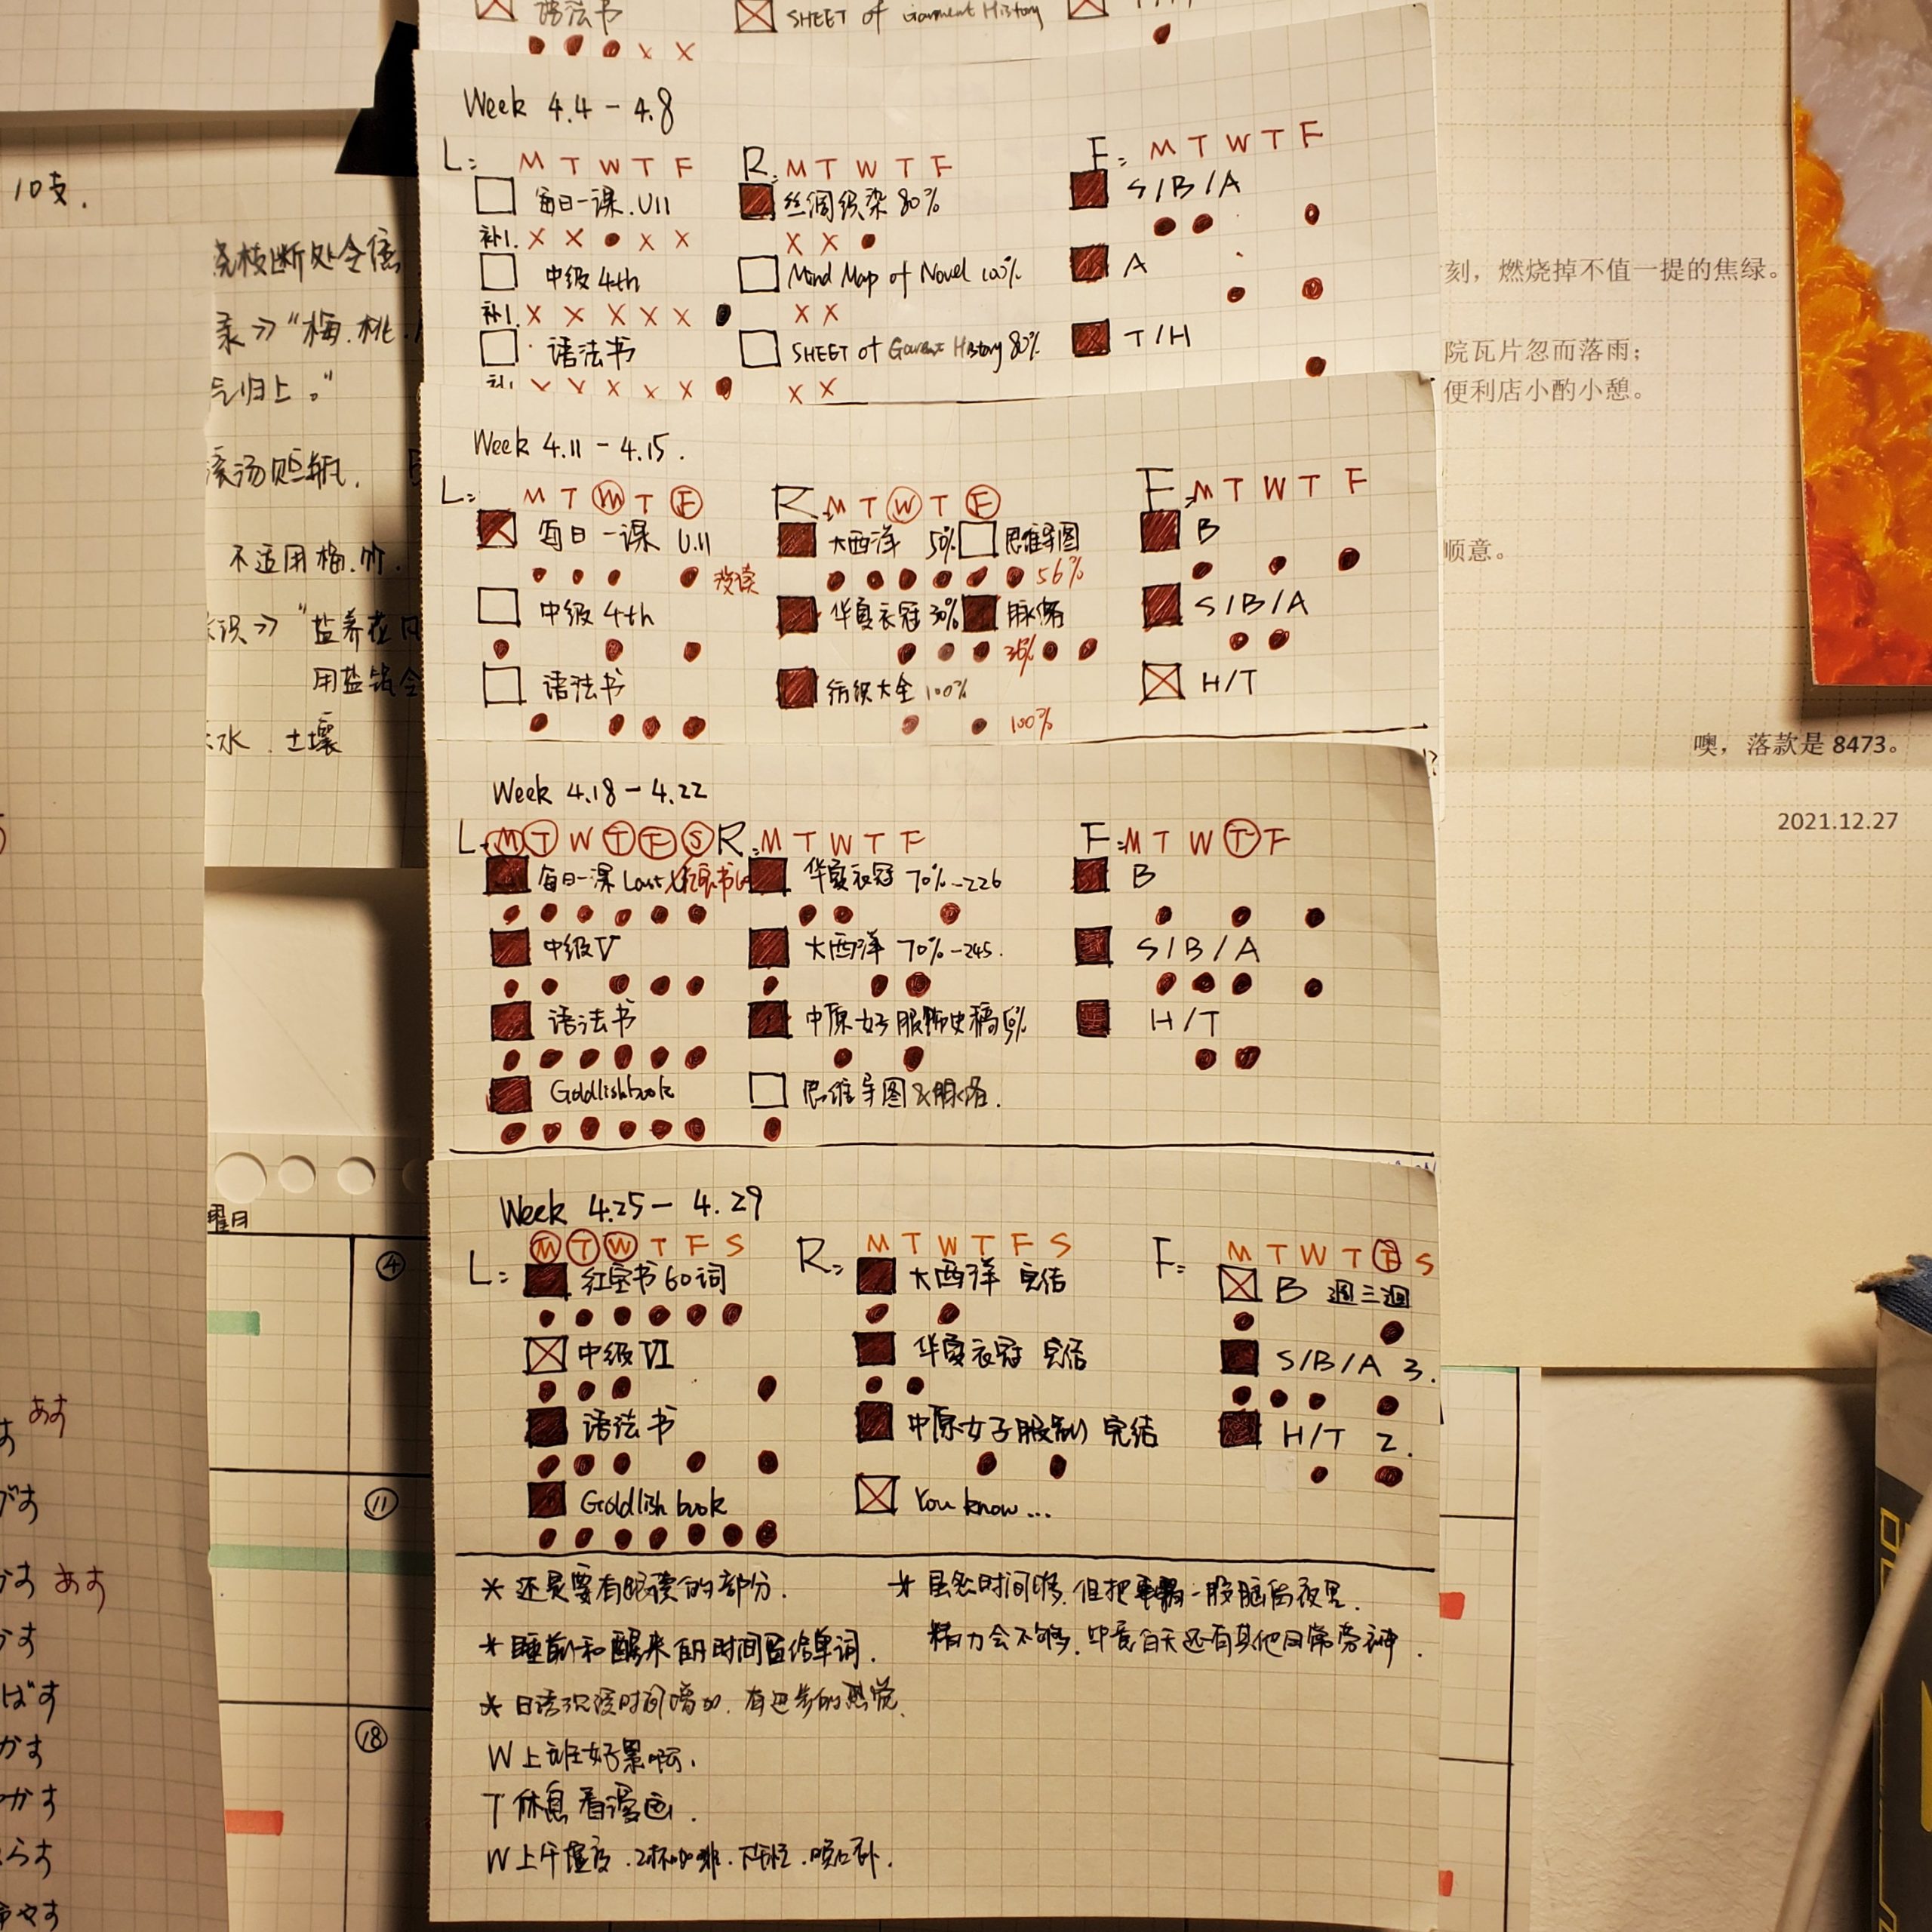 语法书 SHEET of Garment History
X X
Week 4.4 - 4.8
L: M T W T F R: M T W T F F: M T W T F
每日一课.U11 丝绸织染 80% S/B/A
补1. X X X X X X
中级 4th Mind Map of Novel 100% A
补1. X X X X X X X
语法书 SHEET of Garment History 80% T/H
X X X X X X X
Week 4.11 - 4.15.
L: M T W T F R: M T W T F F: M T W T F
每日一课 U.11 大西洋 50% 思维导图 B
没读 56%
中级 4th 华夏衣冠 30% 脉络 S/B/A
36%
语法书 纺织大全 100% H/T
100%
Week 4.18 - 4.22
L: M T W T F S R: M T W T F F: M T W T F
每日一课 Last 红宝书 华夏衣冠 70%-226 B
中级V 大西洋 70%-245. S/B/A
语法书 中原女子服饰史稿 H/T
Goldlishbook 思维导图&脉络.
Week 4.25 - 4.29
L: M T W T F S R: M T W T F S F: M T W T F S
红宝书60词 大西洋 完结 B 週三迴
中级VI 华夏衣冠 完结 S/B/A 3.
语法书 中原女子服制 完结 H/T 2.
Goldlish book You know...
* 还是要有眼读的部分.
* 睡前和醒来的时间留给单词.
* 日语沉浸时间增加.有进步的感觉.
W上班好累啊.
T休息看漫画.
* 虽然时间够.但把事一股脑留夜里.
精力会不够.毕竟白天还有其他日常劳神.
10支.
录》"梅.桃.
气归上。"
滚汤贮瓶.
不适用梅.竹.
识》"盐养花
水.土壤
曜日
④
⑪
⑱
あす
あす
ばす
かす
かす
らす
刻，燃烧掉不值一提的焦绿。
院瓦片忽而落雨；
便利店小酌小憩。
顺意。
噢，落款是 8473。
2021.12.27